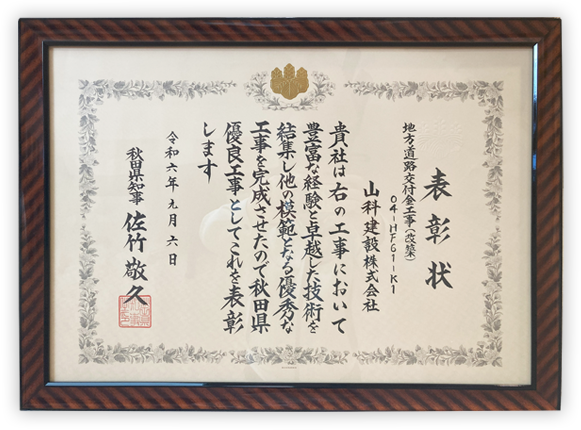 表彰状
地方道路交付金工事(改築)
04-HF61-K1
山科建設株式会社
貴社は右の工事において
豊富な経験と卓越した技術を
結集し他の模範となる優秀な
工事を完成させたので秋田県
優良工事としてこれを表彰
します
令和六年九月六日
秋田県知事 佐竹敬久